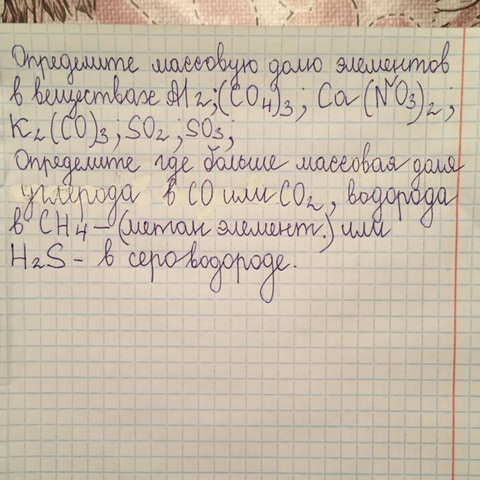 Определите массовую долю элементов
в веществах Al2;(CO4)3; Ca(NO3)2;
K2(CO)3; SO2; SO3,
Определите где больше массовая доля
углерода в CO или CO2, водорода
в CH4-(метан элемент.) или
H2S- в сероводороде.